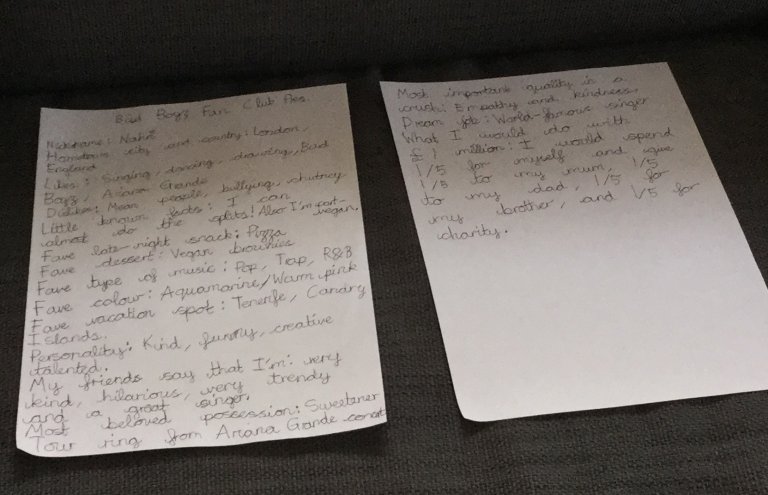 Bad Boyz Fan Club Pres
Nickname: Nahé
Hometown city and country: London,
England
Likes: Singing, dancing, drawing, Bad
Boyz, Ariana Grande
Dislikes: Mean people, bullying, chutney
Little known facts: I can
almost do the splits! Also I'm part-
vegan.
Fave late-night snack: Pizza
Fave dessert: Vegan brownies
Fave type of music: Pop, Trap, R&B
Fave colour: Aquamarine/Warm pink
Fave vacation spot: Tenerife, Canary
Islands.
Personality: Kind, funny, creative
talented.
My friends say that I'm: very
kind, hilarious, very trendy
and a great singer.
Most beloved possession: Sweetener
Tour ring from Ariana Grande concert
Most important quality in a
crush: Empathy and kindness
Dream job: World-famous singer
What I would do with
£1 million: I would spend
1/5 for myself and give
1/5 to my mum, 1/5
to my dad, 1/5 for
my brother, and 1/5 for
charity.